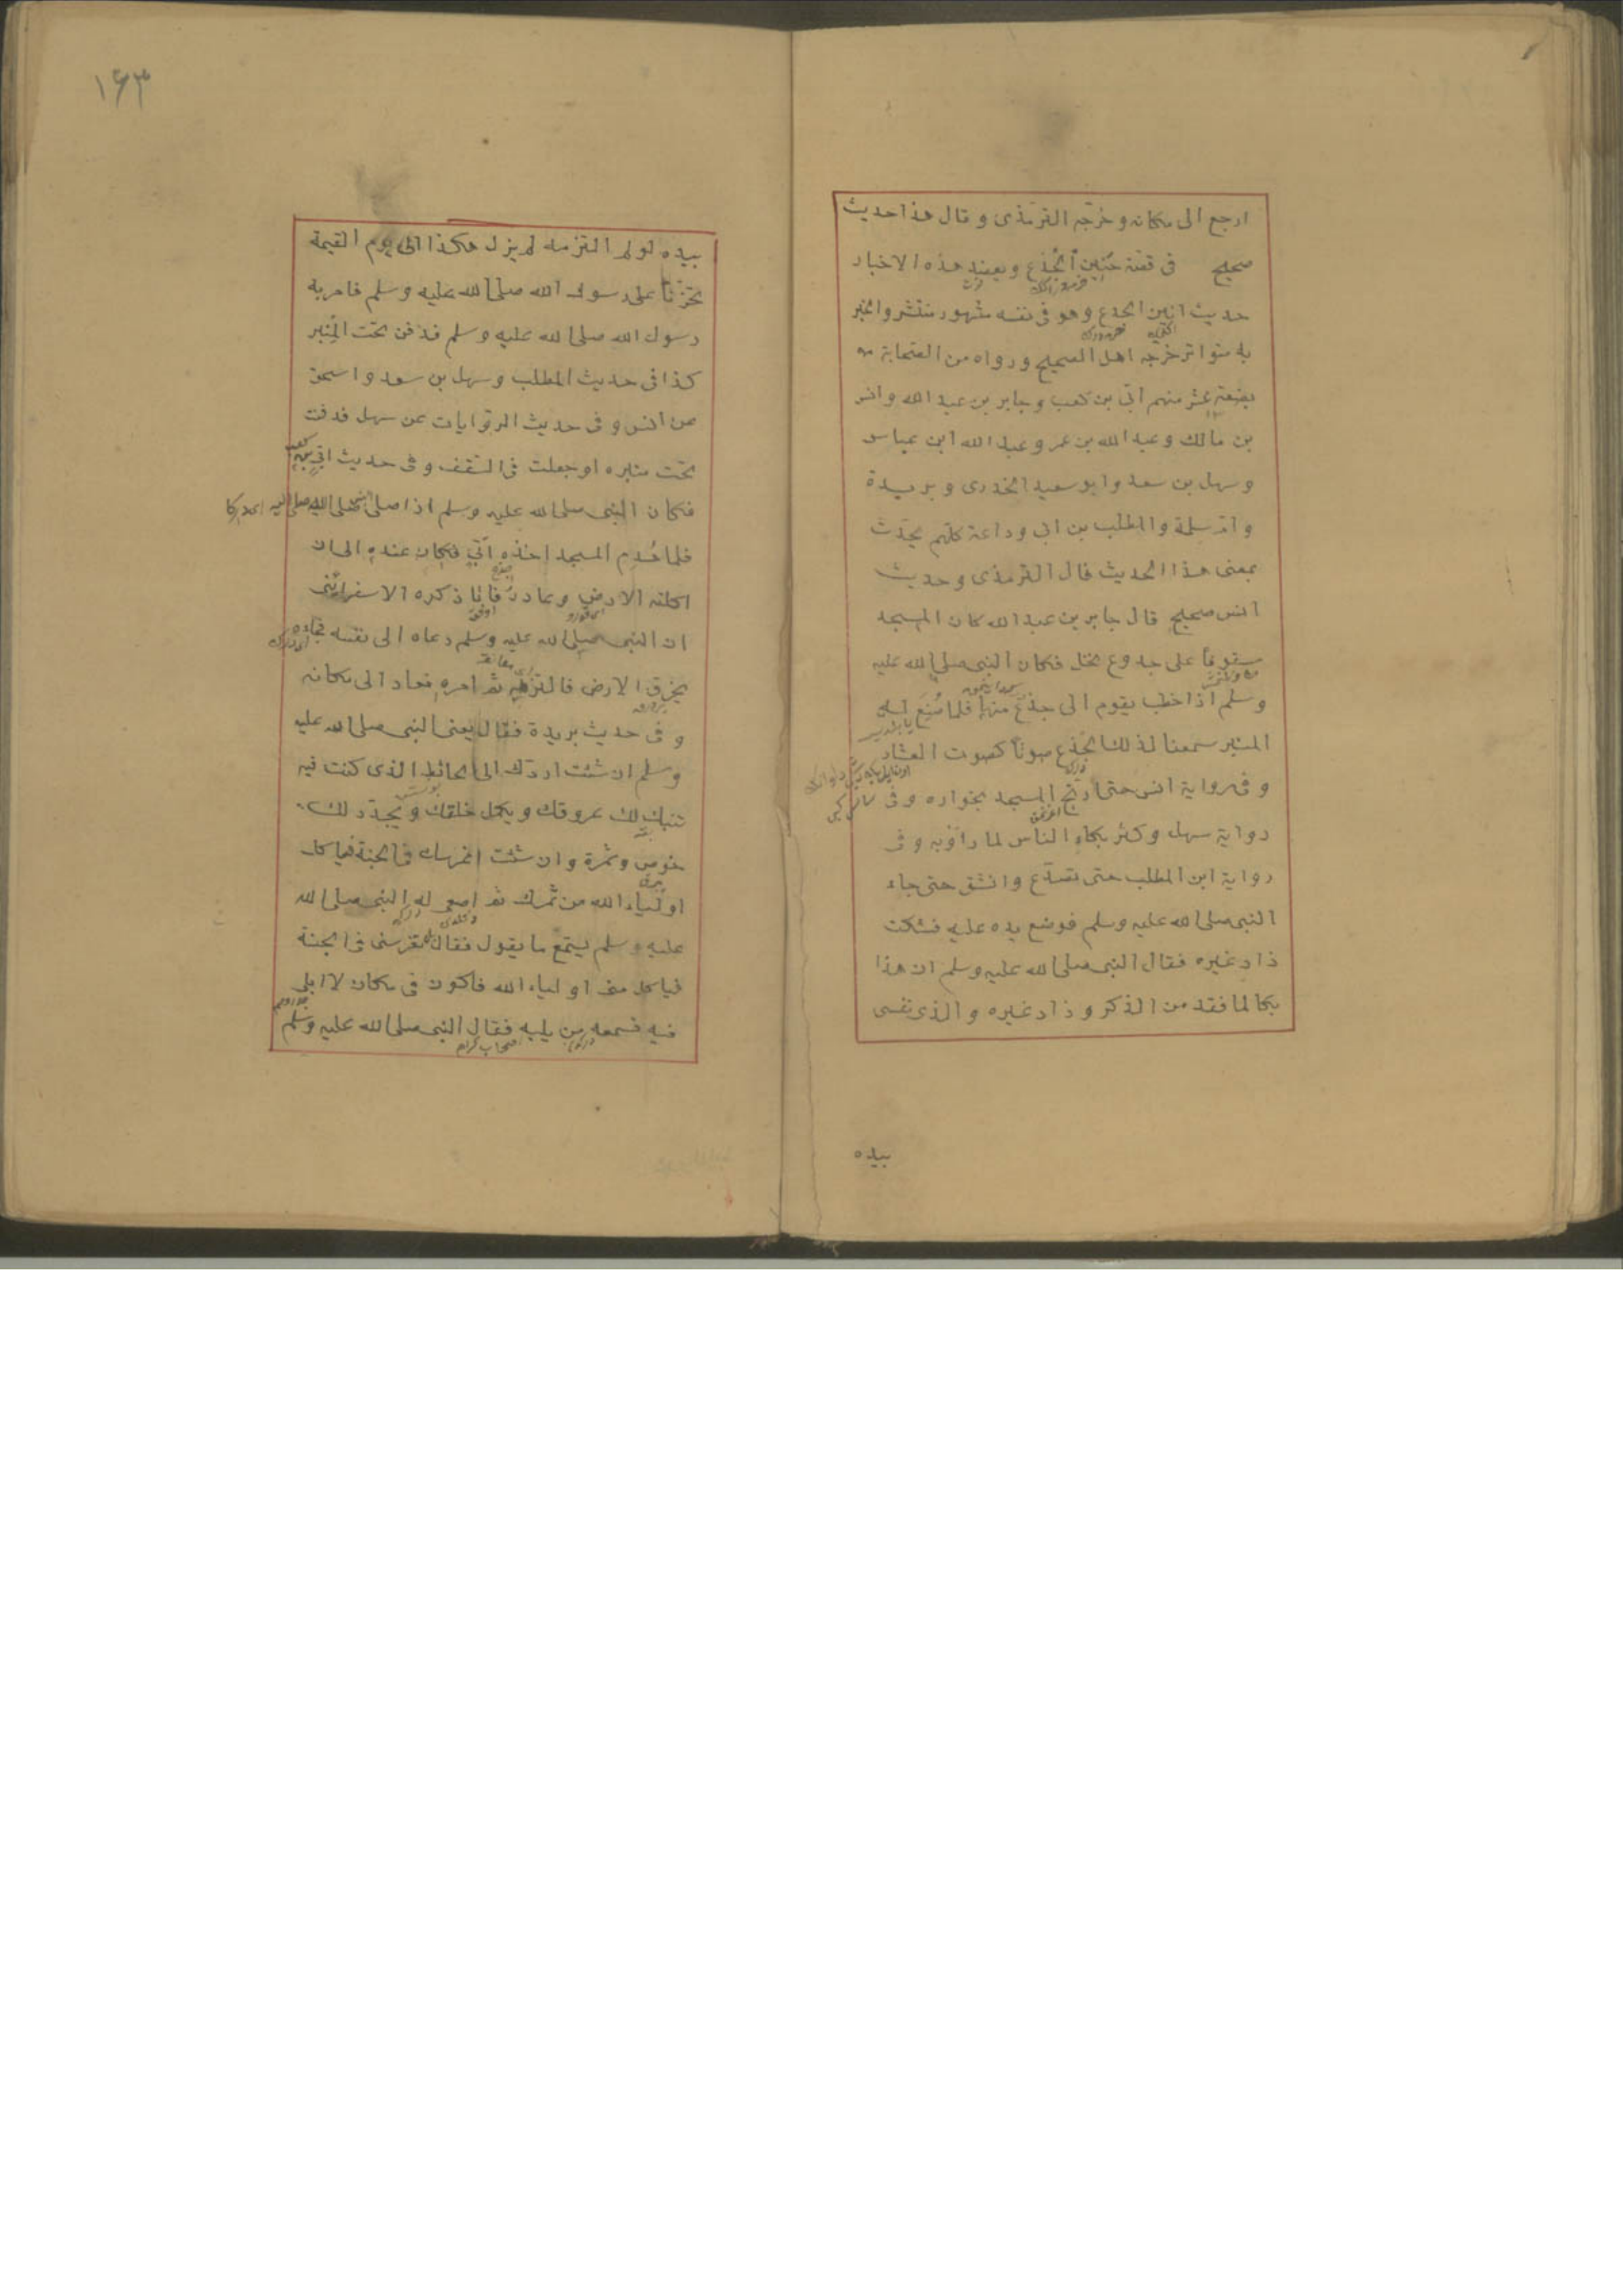 ارجع الى مكانه وخرّجه الترمذى وقال هذا حديث
صحيح فى قصّة حنين الجذع ويعضد هذه الاخبار
حديث انين الجذع وهو فى نفسه مشهور منتشر والخبر
به متواتر خرّجه اهل الصحيح ورواه من الصّحابة
بضعة عشر منهم ابّي بن كعب وجابر بن عبد الله وانس
بن مالك وعبد الله بن عمر وعبد الله ابن عباس
وسهل بن سعد وابو سعيد الخدرى وبريدة
وامّ سلمة والمطّلب بن ابى وداعة كلّهم يحدّث
بمعنى هذا الحديث قال الترمذى وحديث
انس صحيح قال جابر بن عبد الله كان المسجد
سقوفاً على جذوع نخل فكان النبى صلى الله عليه
وسلم اذا خطب يقوم الى جذع منها فلما صُنِع له
المنبر سمعنا لذلك الجذع صوتاً كصوت العشار
وفى رواية انس حتى ارتجّ المسجد بخواره وفى
رواية سهل وكثر بكاء الناس لما رأوا به وفى
رواية ابن المطلب حتى تصدّع وانشق حتى جاء
النبى صلى الله عليه وسلم فوضع يده عليه فسكت
زاد غيره فقال النبى صلى الله عليه وسلم ان هذا
بكا لما فقد من الذكر وزاد غيره والذى نفسى
بيده
١٦٣
بيده لو لم التزمه لم يزل هكذا الى يوم القيمة
تحزّناً على رسول الله صلى الله عليه وسلم فامر به
رسول الله صلى الله عليه وسلم فدفن تحت المنبر
كذا فى حديث المطلب وسهل بن سعد واسحق
عن انس وفى حديث الروايات عن سهل فدفنت
تحت منبره او جعلت فى السّقف وفى حديث ابّي
فكان النبى صلى الله عليه وسلم اذا صلى صلى اليه
فلما هُدِم المسجد اخذه ابّي فكان عنده الى ان
اكلته الارض وعاد رُفاتا وذكره الاسفرائنى
ان النبى صلى الله عليه وسلم دعاه الى نفسه فجاءه
يخرق الارض فالتزمه ثم امره فعاد الى مكانه
وفى حديث بريدة فقال يعنى النبى صلى الله عليه
وسلم ان شئت اردّك الى الحائط الذى كنت فيه
تنبت لك عروقك ويكمل خلقك ويجدّد لك
خوص وثمرة وان شئت اغرسك فى الجنة فياكل
اولياء الله من ثمرك ثم اصغى له النبى صلى الله
عليه وسلم يستمع ما يقول فقال تغرسنى فى الجنة
فياكل منى اولياء الله فاكون فى مكان لا ابلى
فيه فسمعه من يليه فقال النبى صلى الله عليه وسلم
اصحاب كرام